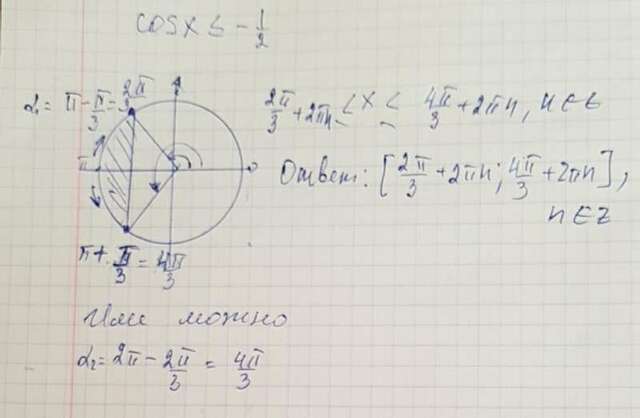 cosx ≤ -1/2
α₁ = π - π/3 = 2π/3
2π/3 + 2πn ≤ x ≤ 4π/3 + 2πn, n ∈ Z
π
Ответ: [2π/3 + 2πn; 4π/3 + 2πn],
n ∈ Z
π + π/3 = 4π/3
Или можно
α₂ = 2π - 2π/3 = 4π/3